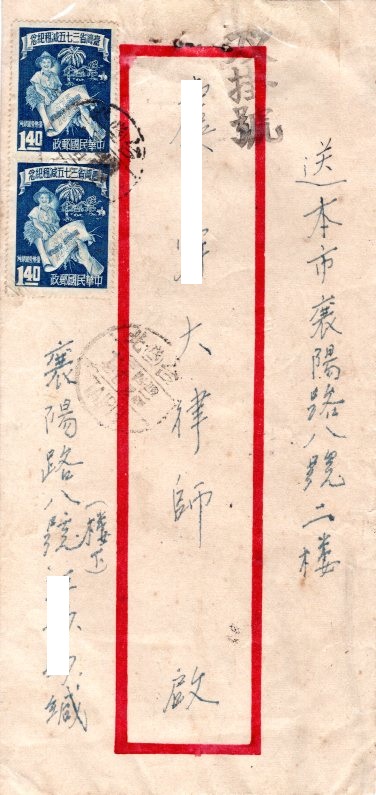 雙掛號
送本市襄陽路八號二樓
大律師 啟
襄陽路八號(樓下) 緘
臺灣省三七五減租紀念
1.40
中華民國郵政
臺灣省三七五減租紀念
1.40
中華民國郵政